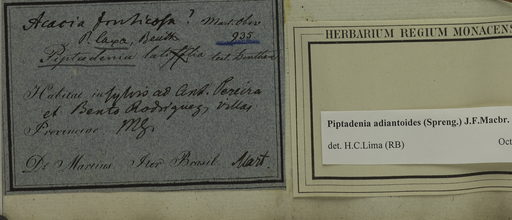 Acacia fruticosa? Mart. Obs.
P. laxa, Benth 935.
Piptadenia latifolia test. Bentham
Habitat in sylvis ad Ant. Pereira
et Bento Rodriguez, villas
Provinciae Mg.
De Martius Iter Brasil. Mart
HERBARIUM REGIUM MONACENS
Piptadenia adiantoides (Spreng.) J.F.Macbr.
det. H.C.Lima (RB) Oct